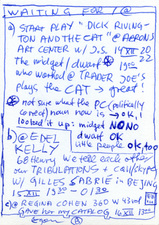 WAITING FOR I@
a) START PLAY "DICK RIVING-
TON AND THE CAT / @ AARON'S
ART CENTER W/ J.S. 14 XII 20
The midget / dwarf 19:00 22
who worked @ TRADER JOE'S
plays the CAT → GREAT!
not sure what the PC (politically
correct) noun now is → OK, I
looked it up: midget NO NO
dwarf OK
little people OK, too
b) @ EDEL
KELLY
68 Henry We tell each other
our TRIBULATIONS + call/skype
W/ GILLES SABRIE in BEIJING
15 XII 19:30 → 01:30
c) @ REGINA COHEN 360 W 43rd
Give her my CATALOG 16 XII 13:00